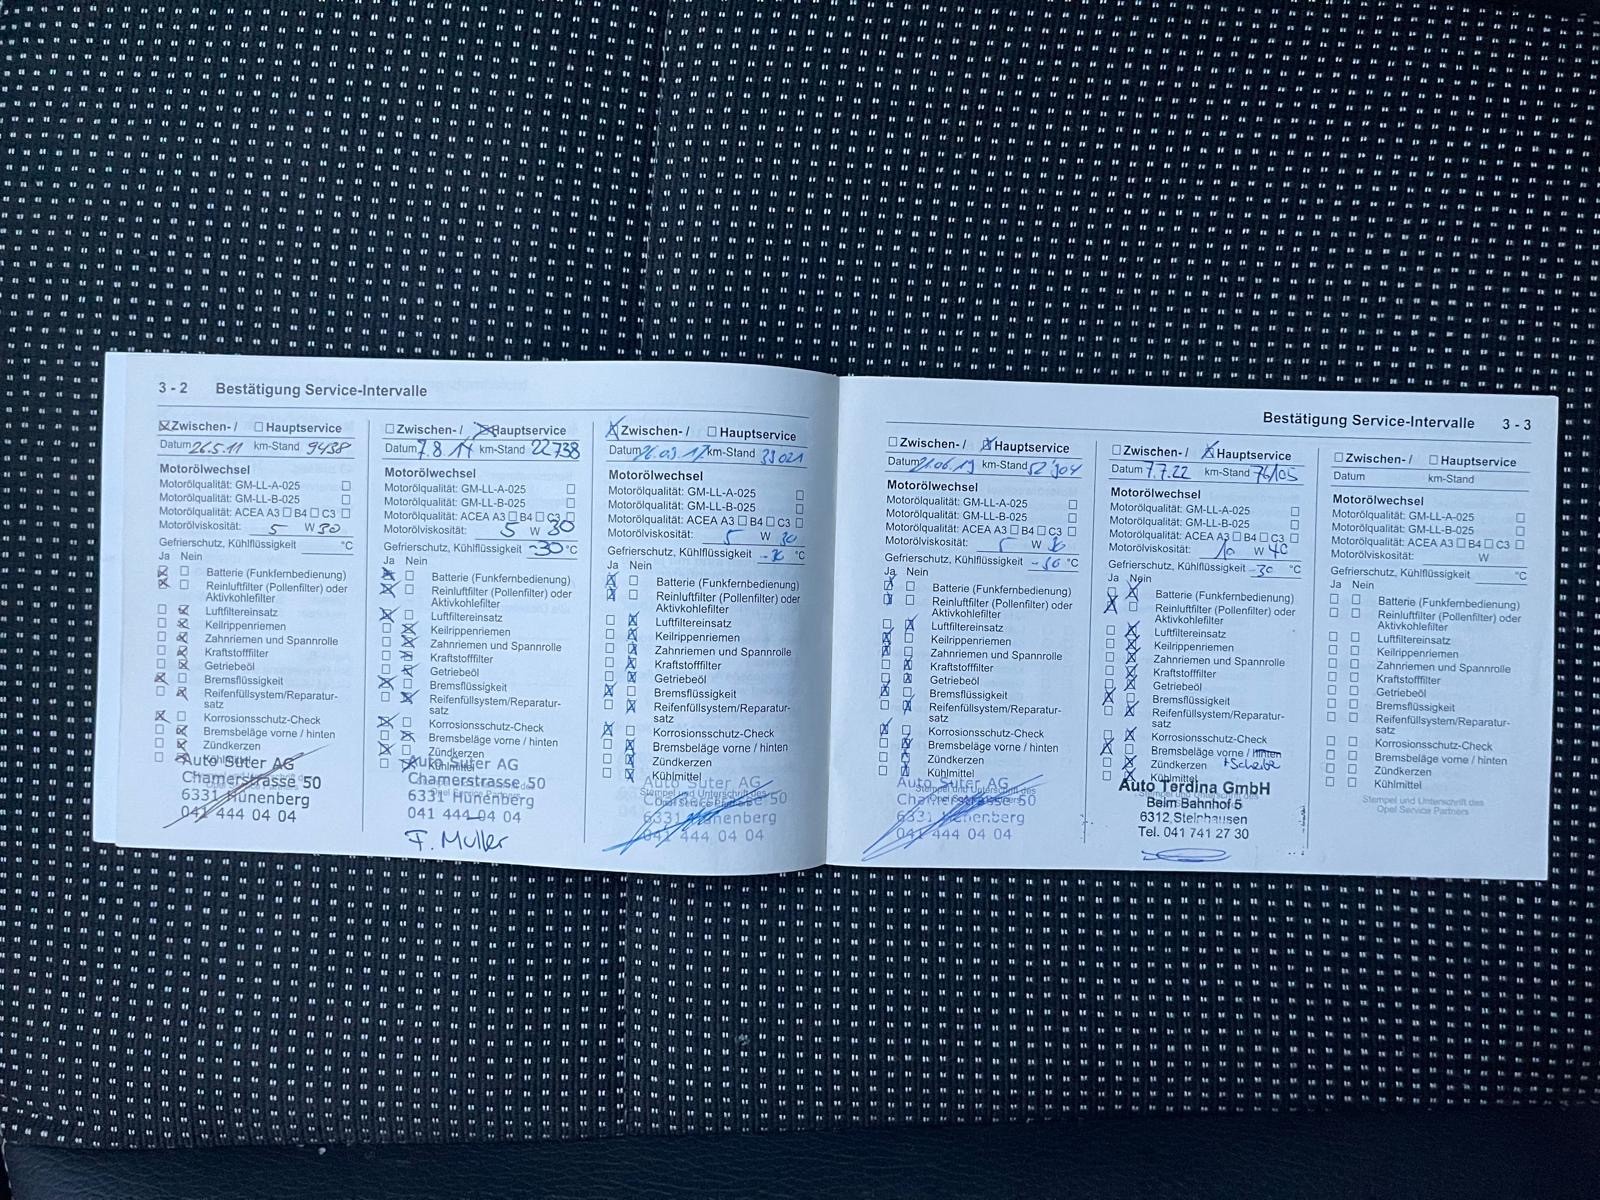 3 - 2 Bestätigung Service-Intervalle
Zwischen- / Hauptservice
Datum 26.5.11 km-Stand 9438
Motorölwechsel
Motorölqualität: GM-LL-A-025
Motorölqualität: GM-LL-B-025
Motorölqualität: ACEA A3 B4 C3
Motorölviskosität: 5 W 30
Gefrierschutz, Kühlflüssigkeit °C
Ja Nein
Batterie (Funkfernbedienung)
Reinluftfilter (Pollenfilter) oder
Aktivkohlefilter
Luftfiltereinsatz
Keilrippenriemen
Zahnriemen und Spannrolle
Kraftstofffilter
Getriebeöl
Bremsflüssigkeit
Reifenfüllsystem/Reparatur-
satz
Korrosionsschutz-Check
Bremsbeläge vorne / hinten
Zündkerzen
Auto Suter AG
Chamerstrasse 50
6331 Hünenberg
041 444 04 04
Zwischen- / Hauptservice
Datum 7.8.14 km-Stand 22738
Motorölwechsel
Motorölqualität: GM-LL-A-025
Motorölqualität: GM-LL-B-025
Motorölqualität: ACEA A3 B4 C3
Motorölviskosität: 5 W 30
Gefrierschutz, Kühlflüssigkeit -30 °C
Ja Nein
Batterie (Funkfernbedienung)
Reinluftfilter (Pollenfilter) oder
Aktivkohlefilter
Luftfiltereinsatz
Keilrippenriemen
Zahnriemen und Spannrolle
Kraftstofffilter
Getriebeöl
Bremsflüssigkeit
Reifenfüllsystem/Reparatur-
satz
Korrosionsschutz-Check
Bremsbeläge vorne / hinten
Zündkerzen
Kühlmittel
Auto Suter AG
Chamerstrasse 50
6331 Hünenberg
041 444 04 04
F. Muller
Zwischen- / Hauptservice
Datum km-Stand 39021
Motorölwechsel
Motorölqualität: GM-LL-A-025
Motorölqualität: GM-LL-B-025
Motorölqualität: ACEA A3 B4 C3
Motorölviskosität: 5 W 30
Gefrierschutz, Kühlflüssigkeit -30 °C
Ja Nein
Batterie (Funkfernbedienung)
Reinluftfilter (Pollenfilter) oder
Aktivkohlefilter
Luftfiltereinsatz
Keilrippenriemen
Zahnriemen und Spannrolle
Kraftstofffilter
Getriebeöl
Bremsflüssigkeit
Reifenfüllsystem/Reparatur-
satz
Korrosionsschutz-Check
Bremsbeläge vorne / hinten
Zündkerzen
Kühlmittel
Auto Suter AG
Stempel und Unterschrift des
Opel Service Partners
Chamerstrasse 50
6331 Hünenberg
041 444 04 04
Bestätigung Service-Intervalle 3 - 3
Zwischen- / Hauptservice
Datum 21.06.19 km-Stand 52'904
Motorölwechsel
Motorölqualität: GM-LL-A-025
Motorölqualität: GM-LL-B-025
Motorölqualität: ACEA A3 B4 C3
Motorölviskosität: 5 W 30
Gefrierschutz, Kühlflüssigkeit -30 °C
Ja Nein
Batterie (Funkfernbedienung)
Reinluftfilter (Pollenfilter) oder
Aktivkohlefilter
Luftfiltereinsatz
Keilrippenriemen
Zahnriemen und Spannrolle
Kraftstofffilter
Getriebeöl
Bremsflüssigkeit
Reifenfüllsystem/Reparatur-
satz
Korrosionsschutz-Check
Bremsbeläge vorne / hinten
Zündkerzen
Kühlmittel
Auto Suter AG
Stempel und Unterschrift des
Opel Service Partners
Chamerstrasse 50
6331 Hünenberg
041 444 04 04
Zwischen- / Hauptservice
Datum 7.7.22 km-Stand 76105
Motorölwechsel
Motorölqualität: GM-LL-A-025
Motorölqualität: GM-LL-B-025
Motorölqualität: ACEA A3 B4 C3
Motorölviskosität: 10 W 40
Gefrierschutz, Kühlflüssigkeit -30 °C
Ja Nein
Batterie (Funkfernbedienung)
Reinluftfilter (Pollenfilter) oder
Aktivkohlefilter
Luftfiltereinsatz
Keilrippenriemen
Zahnriemen und Spannrolle
Kraftstofffilter
Getriebeöl
Bremsflüssigkeit
Reifenfüllsystem/Reparatur-
satz
Korrosionsschutz-Check
Bremsbeläge vorne / hinten
Zündkerzen + Scheibe
Kühlmittel
Auto Terdina GmbH
Beim Bahnhof 5
6312 Steinhausen
Tel. 041 741 27 30
Zwischen- / Hauptservice
Datum km-Stand
Motorölwechsel
Motorölqualität: GM-LL-A-025
Motorölqualität: GM-LL-B-025
Motorölqualität: ACEA A3 B4 C3
Motorölviskosität: W
Gefrierschutz, Kühlflüssigkeit °C
Ja Nein
Batterie (Funkfernbedienung)
Reinluftfilter (Pollenfilter) oder
Aktivkohlefilter
Luftfiltereinsatz
Keilrippenriemen
Zahnriemen und Spannrolle
Kraftstofffilter
Getriebeöl
Bremsflüssigkeit
Reifenfüllsystem/Reparatur-
satz
Korrosionsschutz-Check
Bremsbeläge vorne / hinten
Zündkerzen
Kühlmittel
Stempel und Unterschrift des
Opel Service Partners